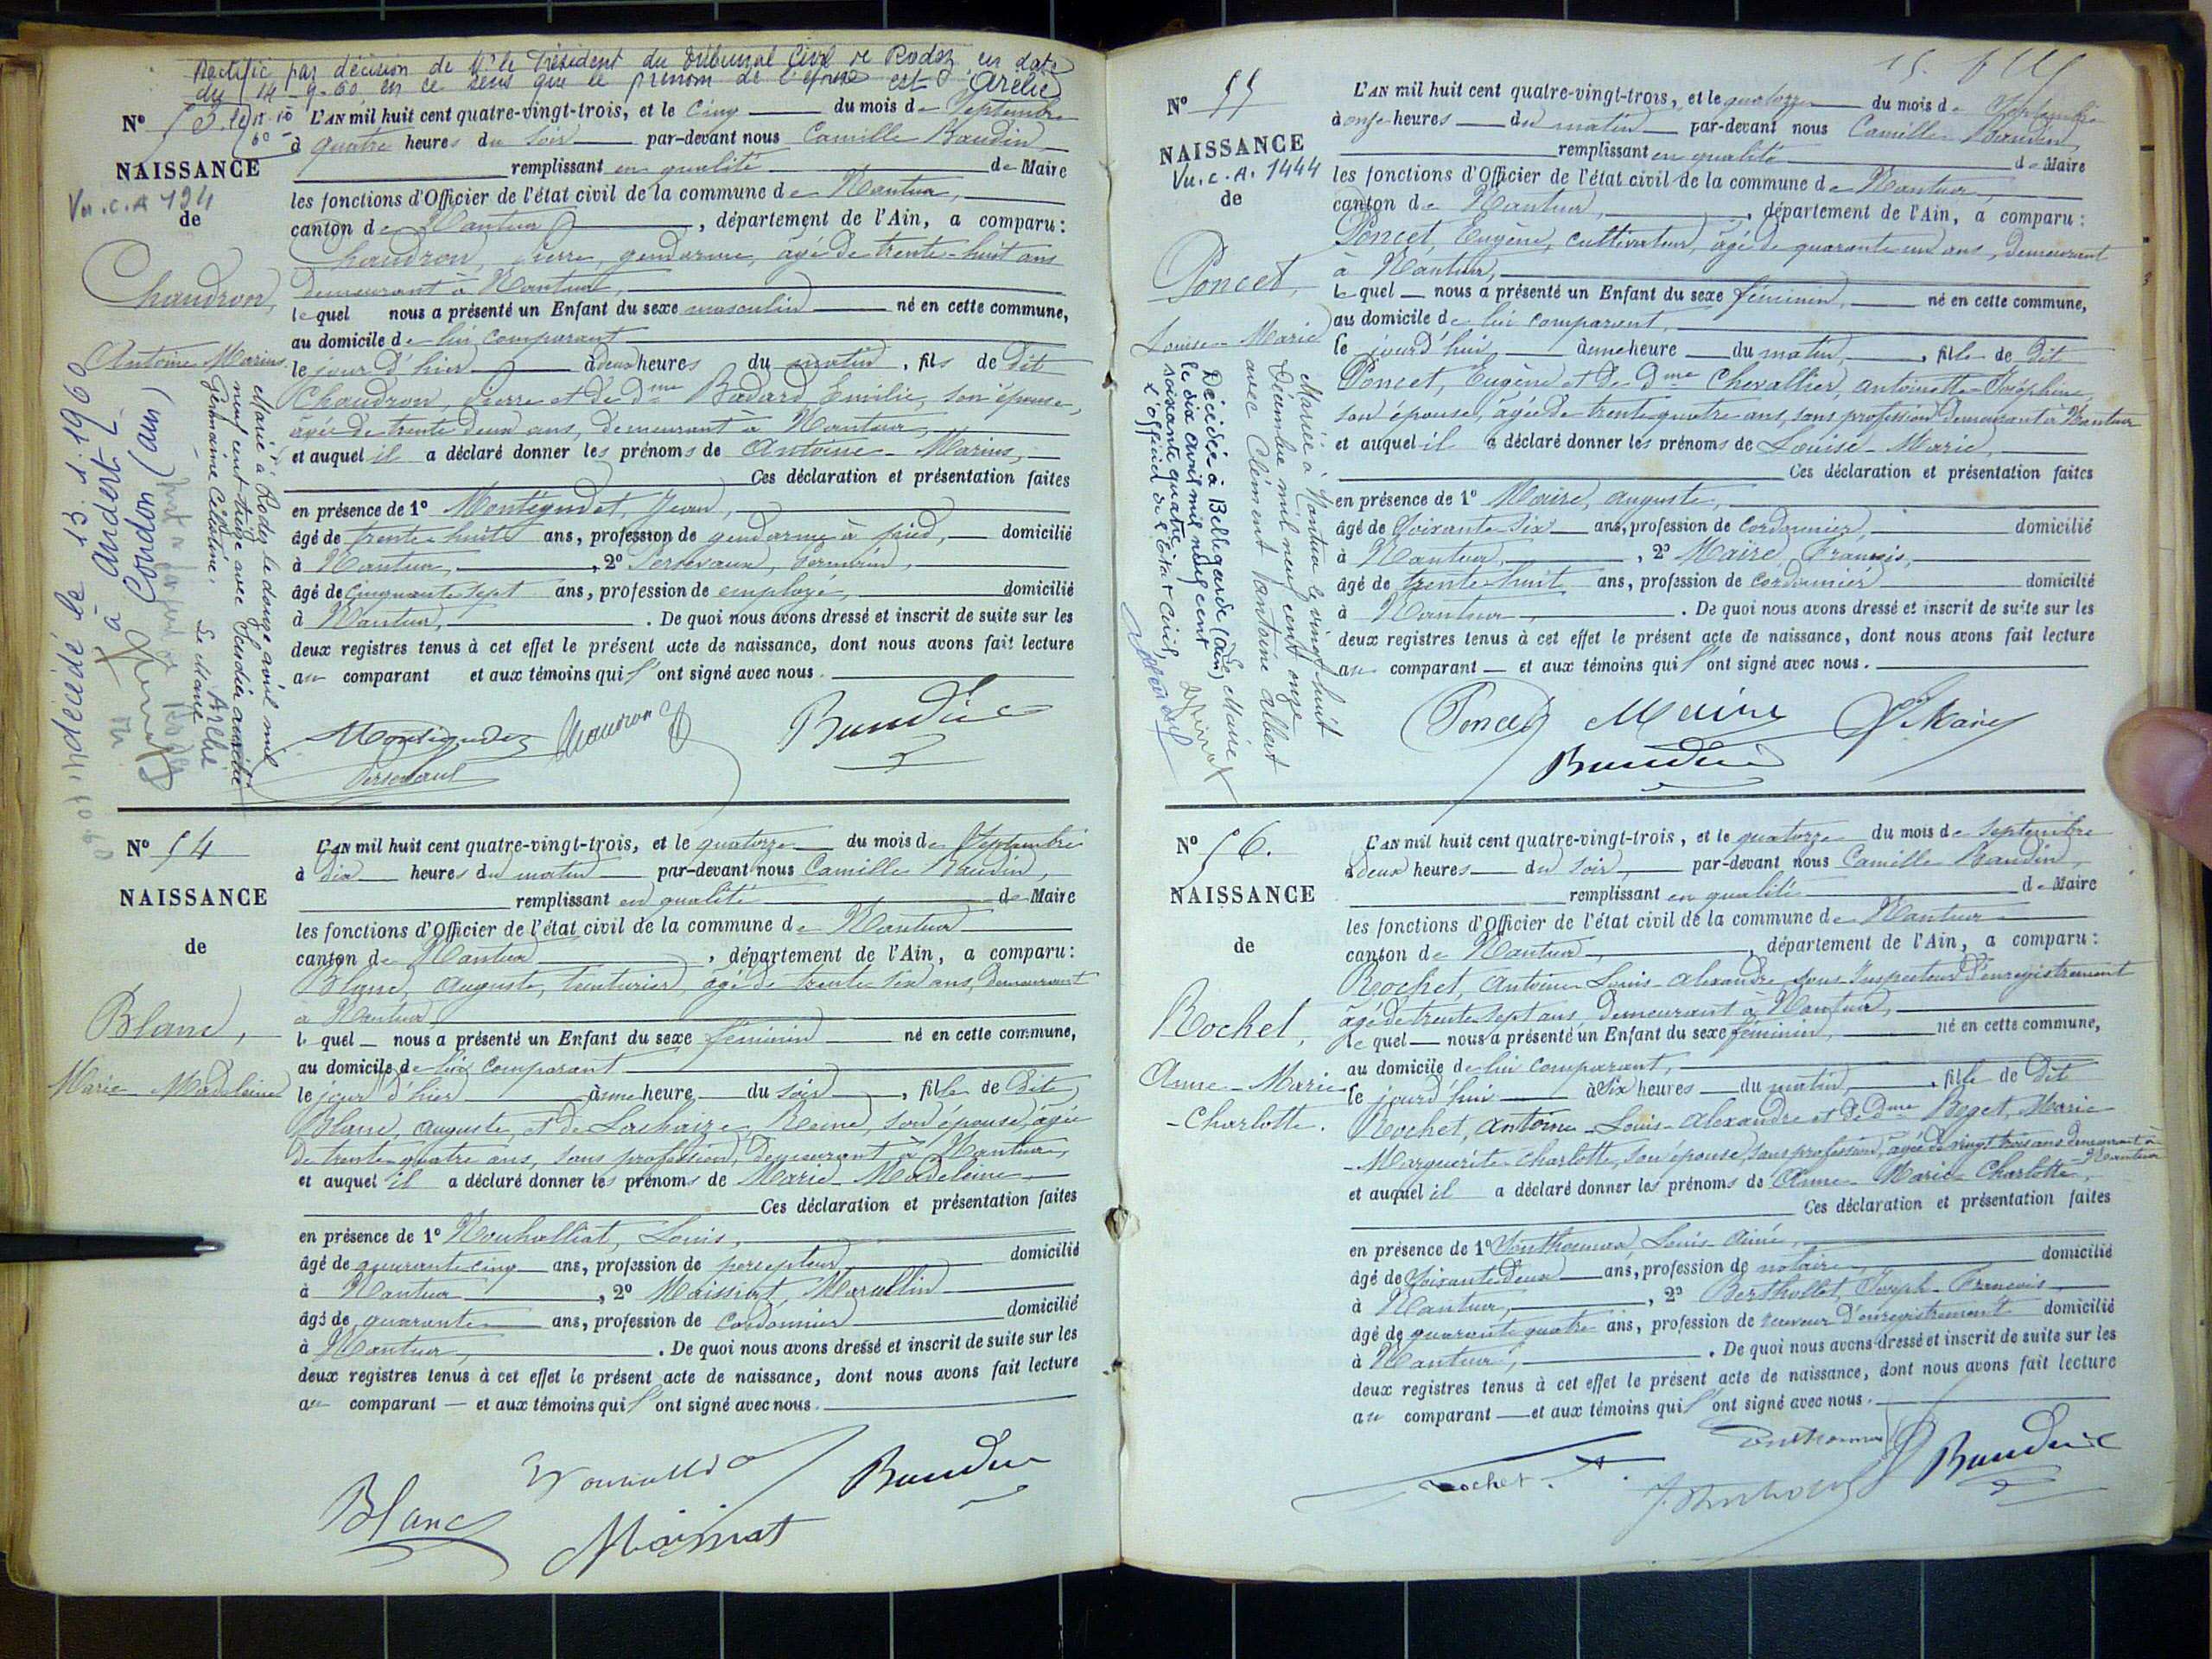 Rectifié par décision de Mr le Président du Tribunal Civil de Rodez en date
du 14-9-60 en ce sens que le prénom de l'épouse est Arélie
N° 53
NAISSANCE
Vu.C.A 194
de
Chaudron,
Antoine Marius
L'AN mil huit cent quatre-vingt-trois, et le cinq du mois de Septembre
à quatre heures du soir par-devant nous Camille Baudin
remplissant en qualité de Maire
les fonctions d'Officier de l'état civil de la commune de Nantua,
canton de Nantua, département de l'Ain, a comparu:
Chaudron, Pierre, gendarme, âgé de trente-huit ans
demeurant à Nantua,
lequel nous a présenté un Enfant du sexe masculin né en cette commune,
au domicile de lui comparant
le jour d'hier à deux heures du matin, fils de dit
Chaudron, Pierre et de Dme Badard, Emilie, son épouse,
âgée de trente deux ans, demeurant à Nantua,
et auquel il a déclaré donner les prénoms de Antoine-Marius,
Ces déclaration et présentation faites
en présence de 1° Montegudet, Jean,
âgé de trente-huit ans, profession de gendarme à pied, domicilié
à Nantua, 2°
âgé de cinquante sept ans, profession de employé, domicilié
à Nantua, . De quoi nous avons dressé et inscrit de suite sur les
deux registres tenus à cet effet le présent acte de naissance, dont nous avons fait lecture
au comparant et aux témoins qui l'ont signé avec nous.
Montegudet Chaudron Baudin
Marié à Rodez le douze avril mil
neuf cent treize avec
Germaine Célestine.
Le Maire
décédé le 13.1.1960
à Andert-
Condon (ain)
N° 54
NAISSANCE
de
Blanc,
Marie-Madeleine
L'AN mil huit cent quatre-vingt-trois, et le quatorze du mois de Septembre
à dix heures du matin par-devant nous Camille Baudin,
remplissant en qualité de Maire
les fonctions d'Officier de l'état civil de la commune de Nantua
canton de Nantua, département de l'Ain, a comparu:
Blanc, Auguste, teinturier, âgé de trente six ans, demeurant
à Nantua
lequel nous a présenté un Enfant du sexe féminin né en cette commune,
au domicile de lui comparant
le jour d'hier à une heure du soir, fille de dit
Blanc, Auguste, et de Lachaize, Reine, son épouse, âgée
de trente-quatre ans, sans profession, demeurant à Nantua,
et auquel il a déclaré donner les prénoms de Marie-Madeleine
Ces déclaration et présentation faites
en présence de 1° Louis,
âgé de quarante-cinq ans, profession de percepteur domicilié
à Nantua, 2° Maissiat, Marcellin
âgé de quarante ans, profession de cordonnier domicilié
à Nantua, . De quoi nous avons dressé et inscrit de suite sur les
deux registres tenus à cet effet le présent acte de naissance, dont nous avons fait lecture
au comparant et aux témoins qui l'ont signé avec nous.
Blanc Maissiat Baudin
N° 55
NAISSANCE
Vu.C.A. 1444
de
Poncet,
Louise-Marie
L'AN mil huit cent quatre-vingt-trois, et le quatorze du mois de Septembre
à onze heures du matin par-devant nous Camille Baudin,
remplissant en qualité de Maire
les fonctions d'Officier de l'état civil de la commune de Nantua,
canton de Nantua, département de l'Ain, a comparu:
Poncet, Eugène, cultivateur, âgé de quarante un ans, demeurant
à Nantua,
lequel nous a présenté un Enfant du sexe féminin, né en cette commune,
au domicile de lui comparant,
le jourd'hui à une heure du matin, fille de dit
Poncet, Eugène et de Dme Chevallier, Antoinette-Joséphine,
son épouse, âgée de trente-quatre ans, sans profession demeurant à Nantua
et auquel il a déclaré donner les prénoms de Louise-Marie,
Ces déclaration et présentation faites
en présence de 1° Maire, Auguste,
âgé de soixante six ans, profession de cordonnier, domicilié
à Nantua, 2° Maire, François,
âgé de trente-huit ans, profession de cordonnier domicilié
à Nantua, . De quoi nous avons dressé et inscrit de suite sur les
deux registres tenus à cet effet le présent acte de naissance, dont nous avons fait lecture
au comparant et aux témoins qui l'ont signé avec nous.
Poncet Maire F. Maire
Baudin
Mariée à Nantua le vingt huit
Décembre mil neuf cent onze
avec Clément Antoine Albert
Décédée à Bellegarde (Ain)
le dix avril mil neuf cent
soixante quatre.
L'Officier de l'Etat Civil,
N° 56.
NAISSANCE
de
Rochet,
Anne-Marie
-Charlotte.
L'AN mil huit cent quatre-vingt-trois, et le quatorze du mois de septembre
à deux heures du soir, par-devant nous Camille Baudin,
remplissant en qualité de Maire
les fonctions d'Officier de l'état civil de la commune de Nantua
canton de Nantua, département de l'Ain, a comparu:
Rochet, Antoine-Louis-Alexandre, sous-Inspecteur d'enregistrement
âgé de trente sept ans, demeurant à Nantua,
lequel nous a présenté un Enfant du sexe féminin, né en cette commune,
au domicile de lui comparant,
le jourd'hui à six heures du matin, fille de dit
Rochet, Antoine-Louis-Alexandre et de Dme Beget, Marie
-Marguerite-Charlotte, son épouse, sans profession, âgée de vingt trois ans demeurant à
Nantua
et auquel il a déclaré donner les prénoms de Anne-Marie-Charlotte,
Ces déclaration et présentation faites
en présence de 1° Louis-Aimé,
âgé de soixante deux ans, profession de notaire, domicilié
à Nantua, 2° Berthollet, Joseph-François,
âgé de quarante quatre ans, profession de receveur d'enregistrement domicilié
à Nantua, . De quoi nous avons dressé et inscrit de suite sur les
deux registres tenus à cet effet le présent acte de naissance, dont nous avons fait lecture
au comparant et aux témoins qui l'ont signé avec nous.
Rochet. Baudin